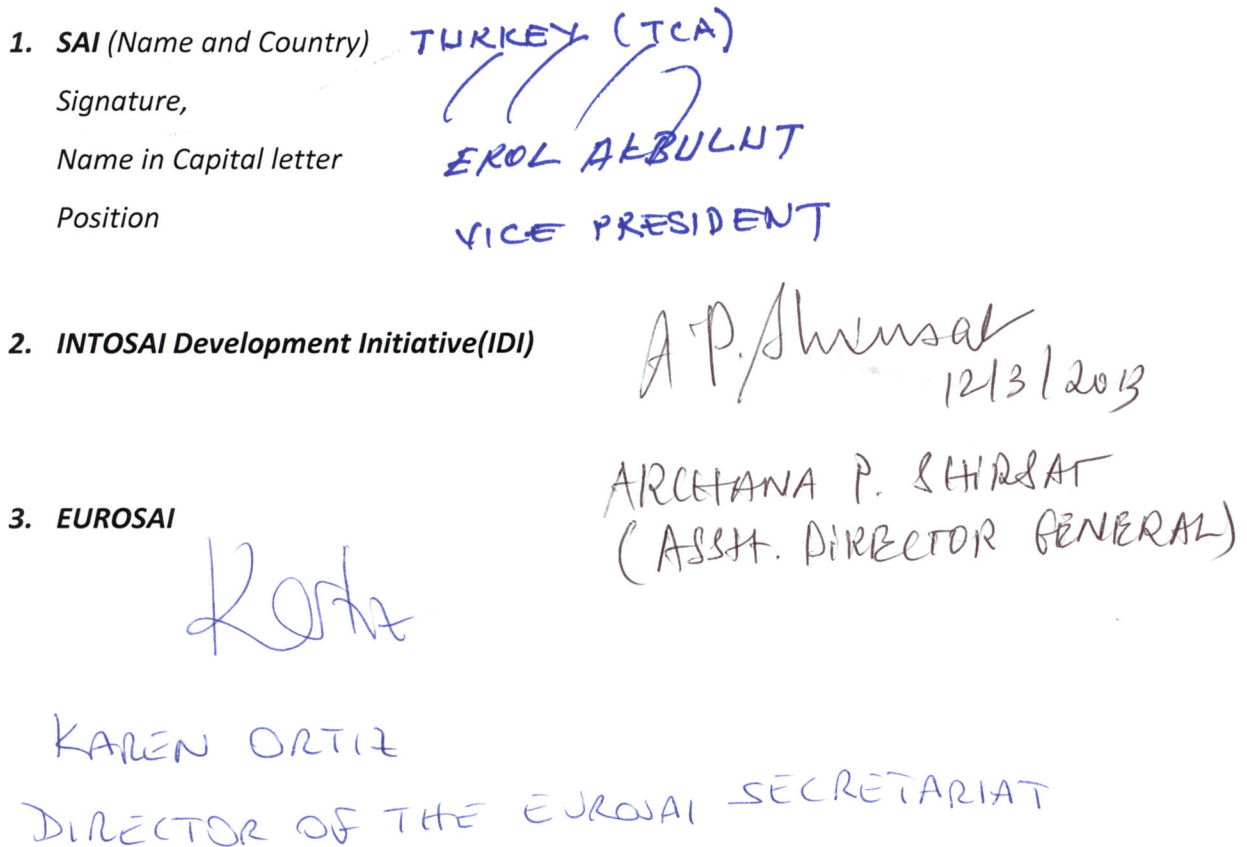 1. SAI (Name and Country) TURKEY (TCA)
Signature,
Name in Capital letter EROL AKBULUT
Position VICE PRESIDENT
2. INTOSAI Development Initiative(IDI) A P. Shirsat
12/3/2013
ARCHANA P. SHIRSAT
3. EUROSAI
(ASSTT. DIRECTOR GENERAL)
KOrtiz
KAREN ORTIZ
DIRECTOR OF THE EUROSAI SECRETARIAT